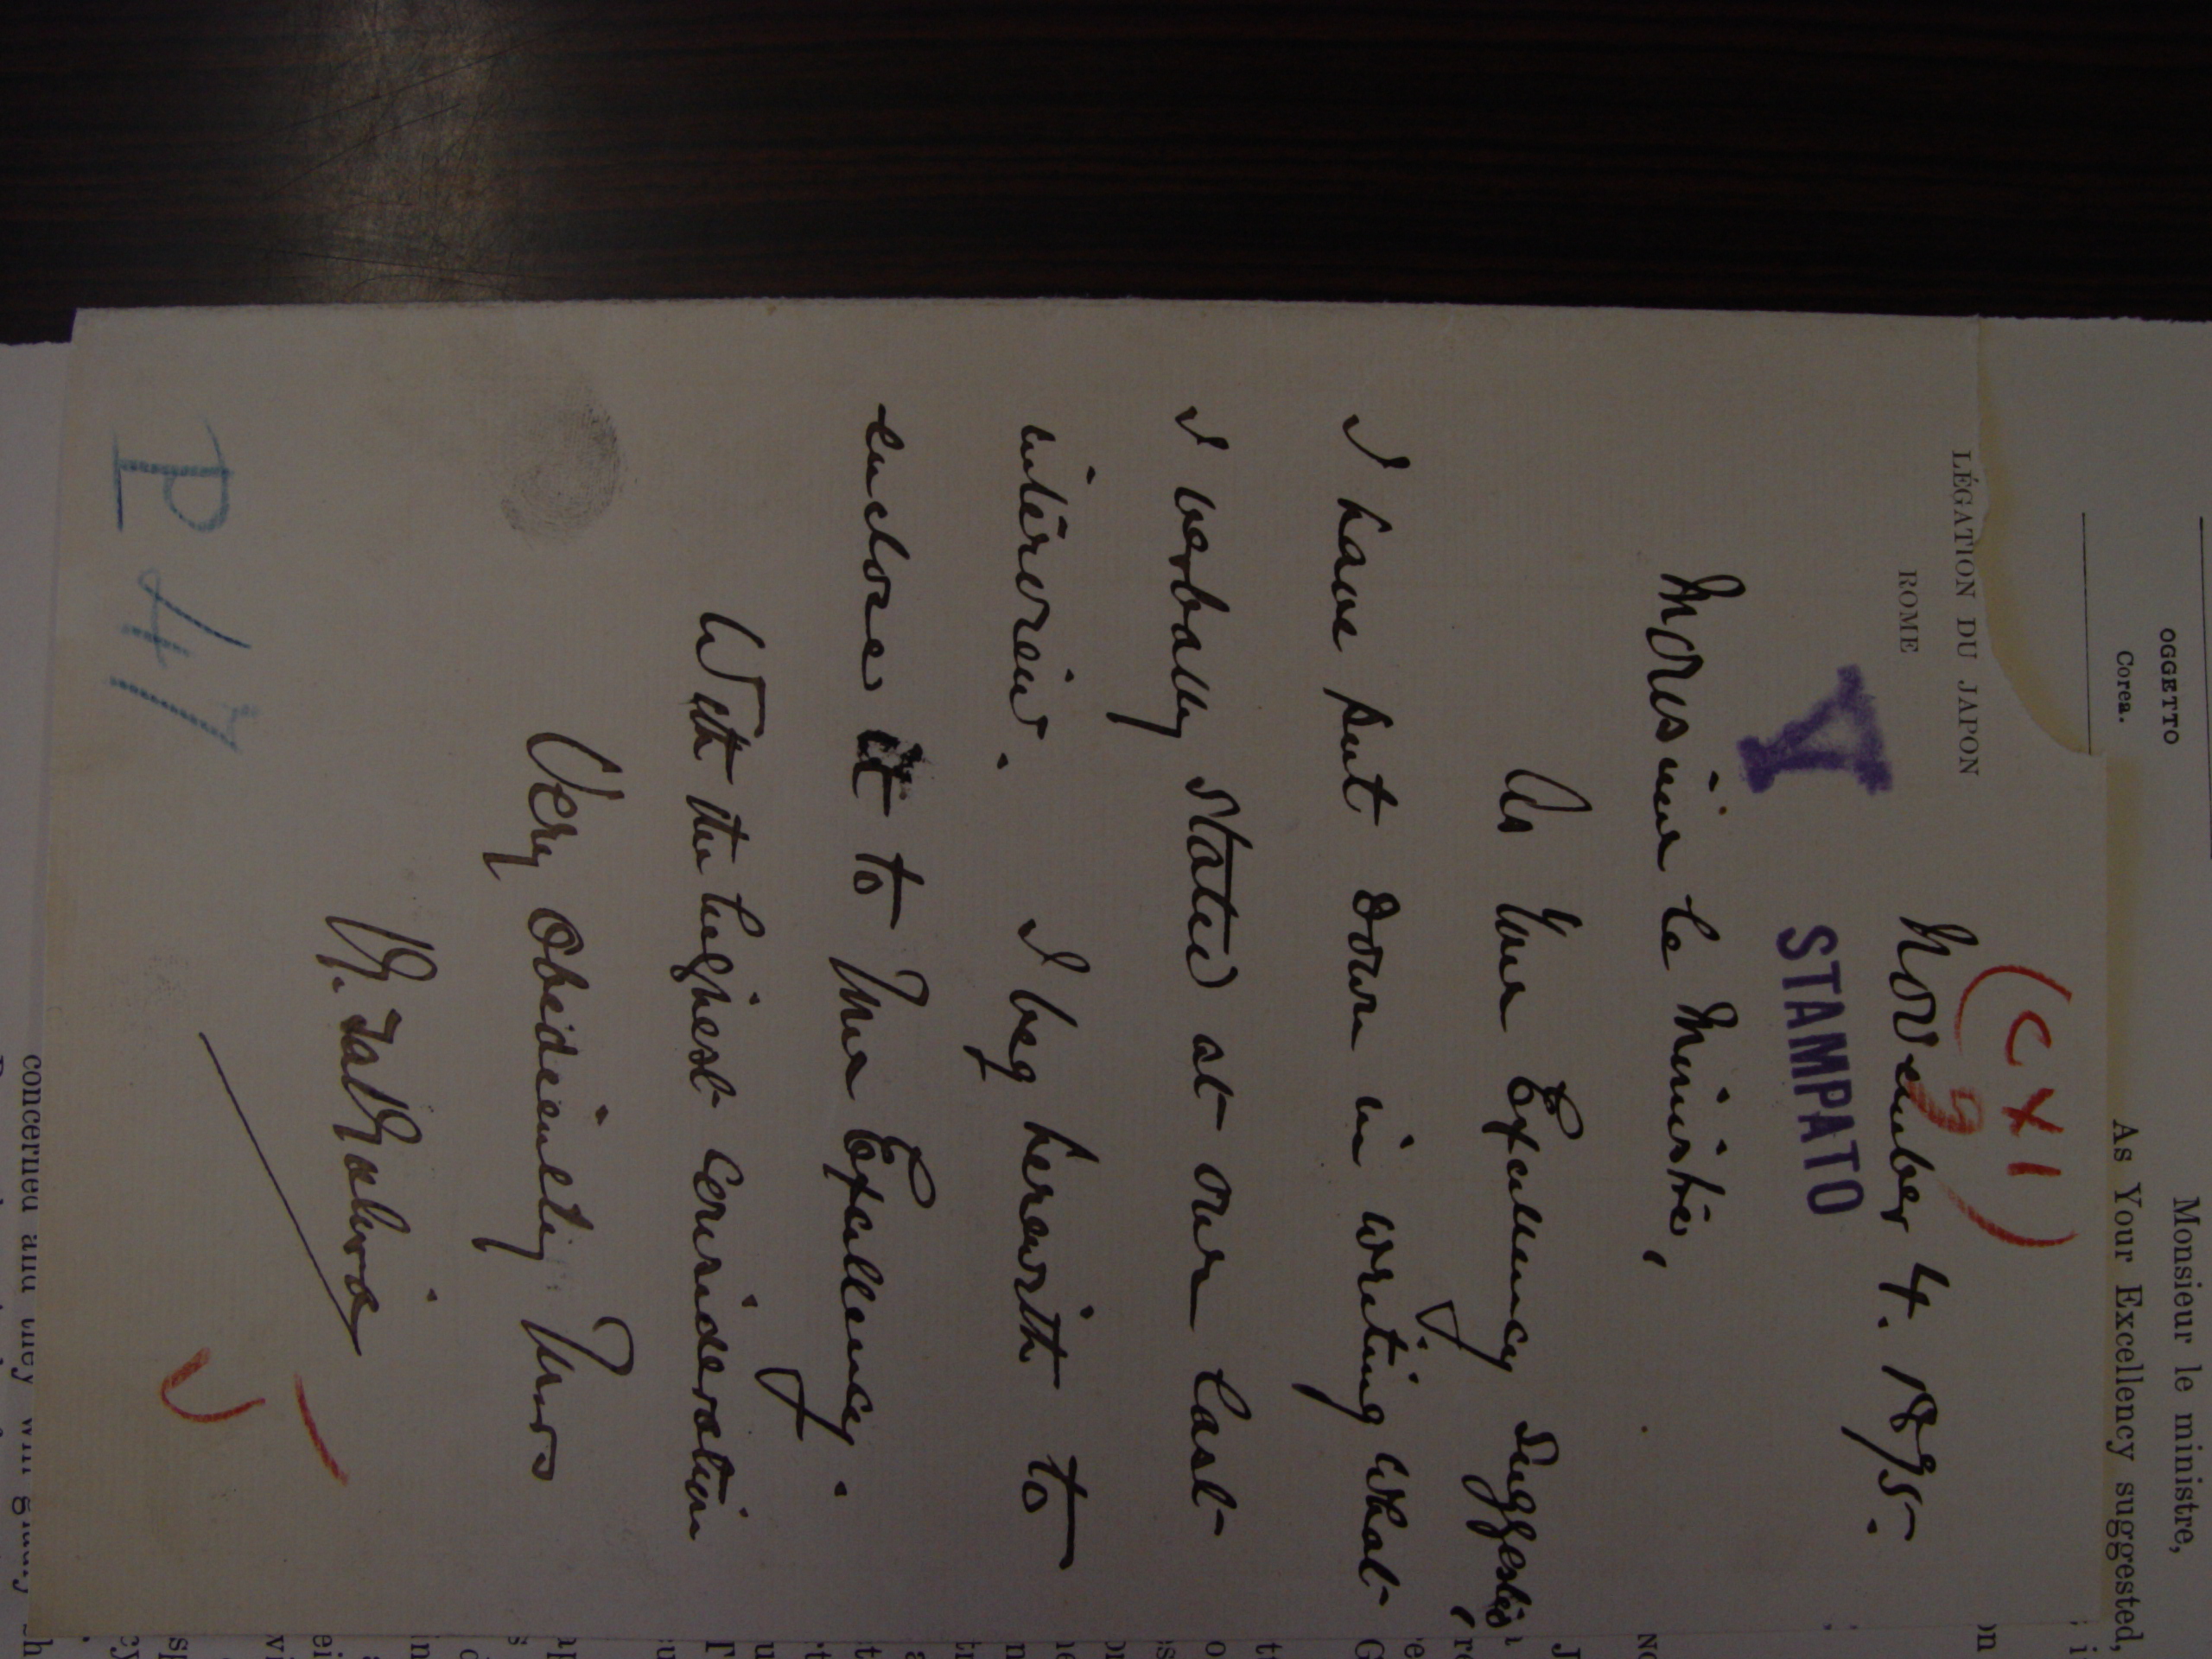 OGGETTO
Corea.
Monsieur le ministre,
As Your Excellency suggested,
LÉGATION DU JAPON
ROME
(CXI)
9
November 4. 1895.
Y
STAMPATO
Monsieur le Ministre,
As Your Excellency suggested,
I have put down in writing what
I verbally stated at our last
interview. I beg herewith to
enclose it to Your Excellency.
With the highest consideration
Very Obediently Yours
P 47
concerned and they will